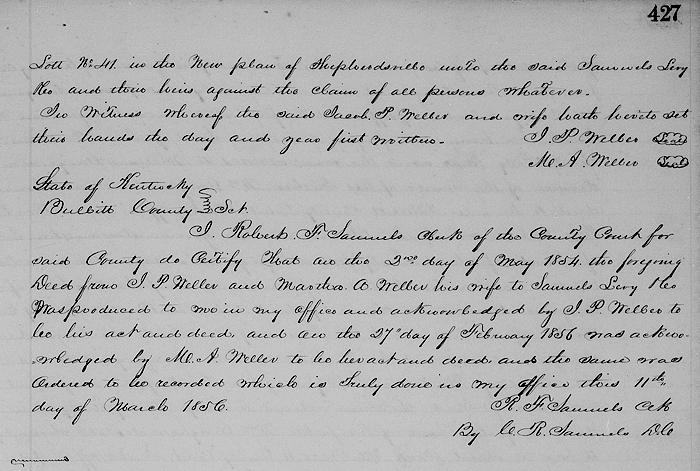 427
Lott No. 41. in the New plan of Shepherdsville unto the said Samuels Levy
&co and their heirs against the claim of all persons whatever.
In Witness whereof the said Jacob. P. Weller and wife hath hereto set
their hands the day and year first written. J. P. Weller Seal
M. A. Weller Seal
State of Kentucky
Bullitt County Sct.
I. Robert. F. Samuels Clerk of the County Court for
said County do Certify that on the 2nd day of May 1854. the foregoing
Deed from J. P Weller and Martha. A Weller his wife to Samuels Levy &co
Was produced to me in my office and acknowledged by J. P. Weller to
be his act and deed, and on the 27th day of February 1856 was acknow-
-wledged by M. A. Weller to be her act and deed and the same was
Ordered to be recorded which is truly done in my office this 11th
day of March 1856. R. F. Samuels Clk
By W. R. Samuels D.C